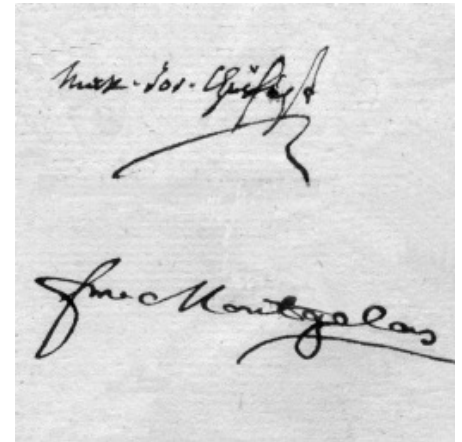 Max. Jos. Churfürst
Montgelas